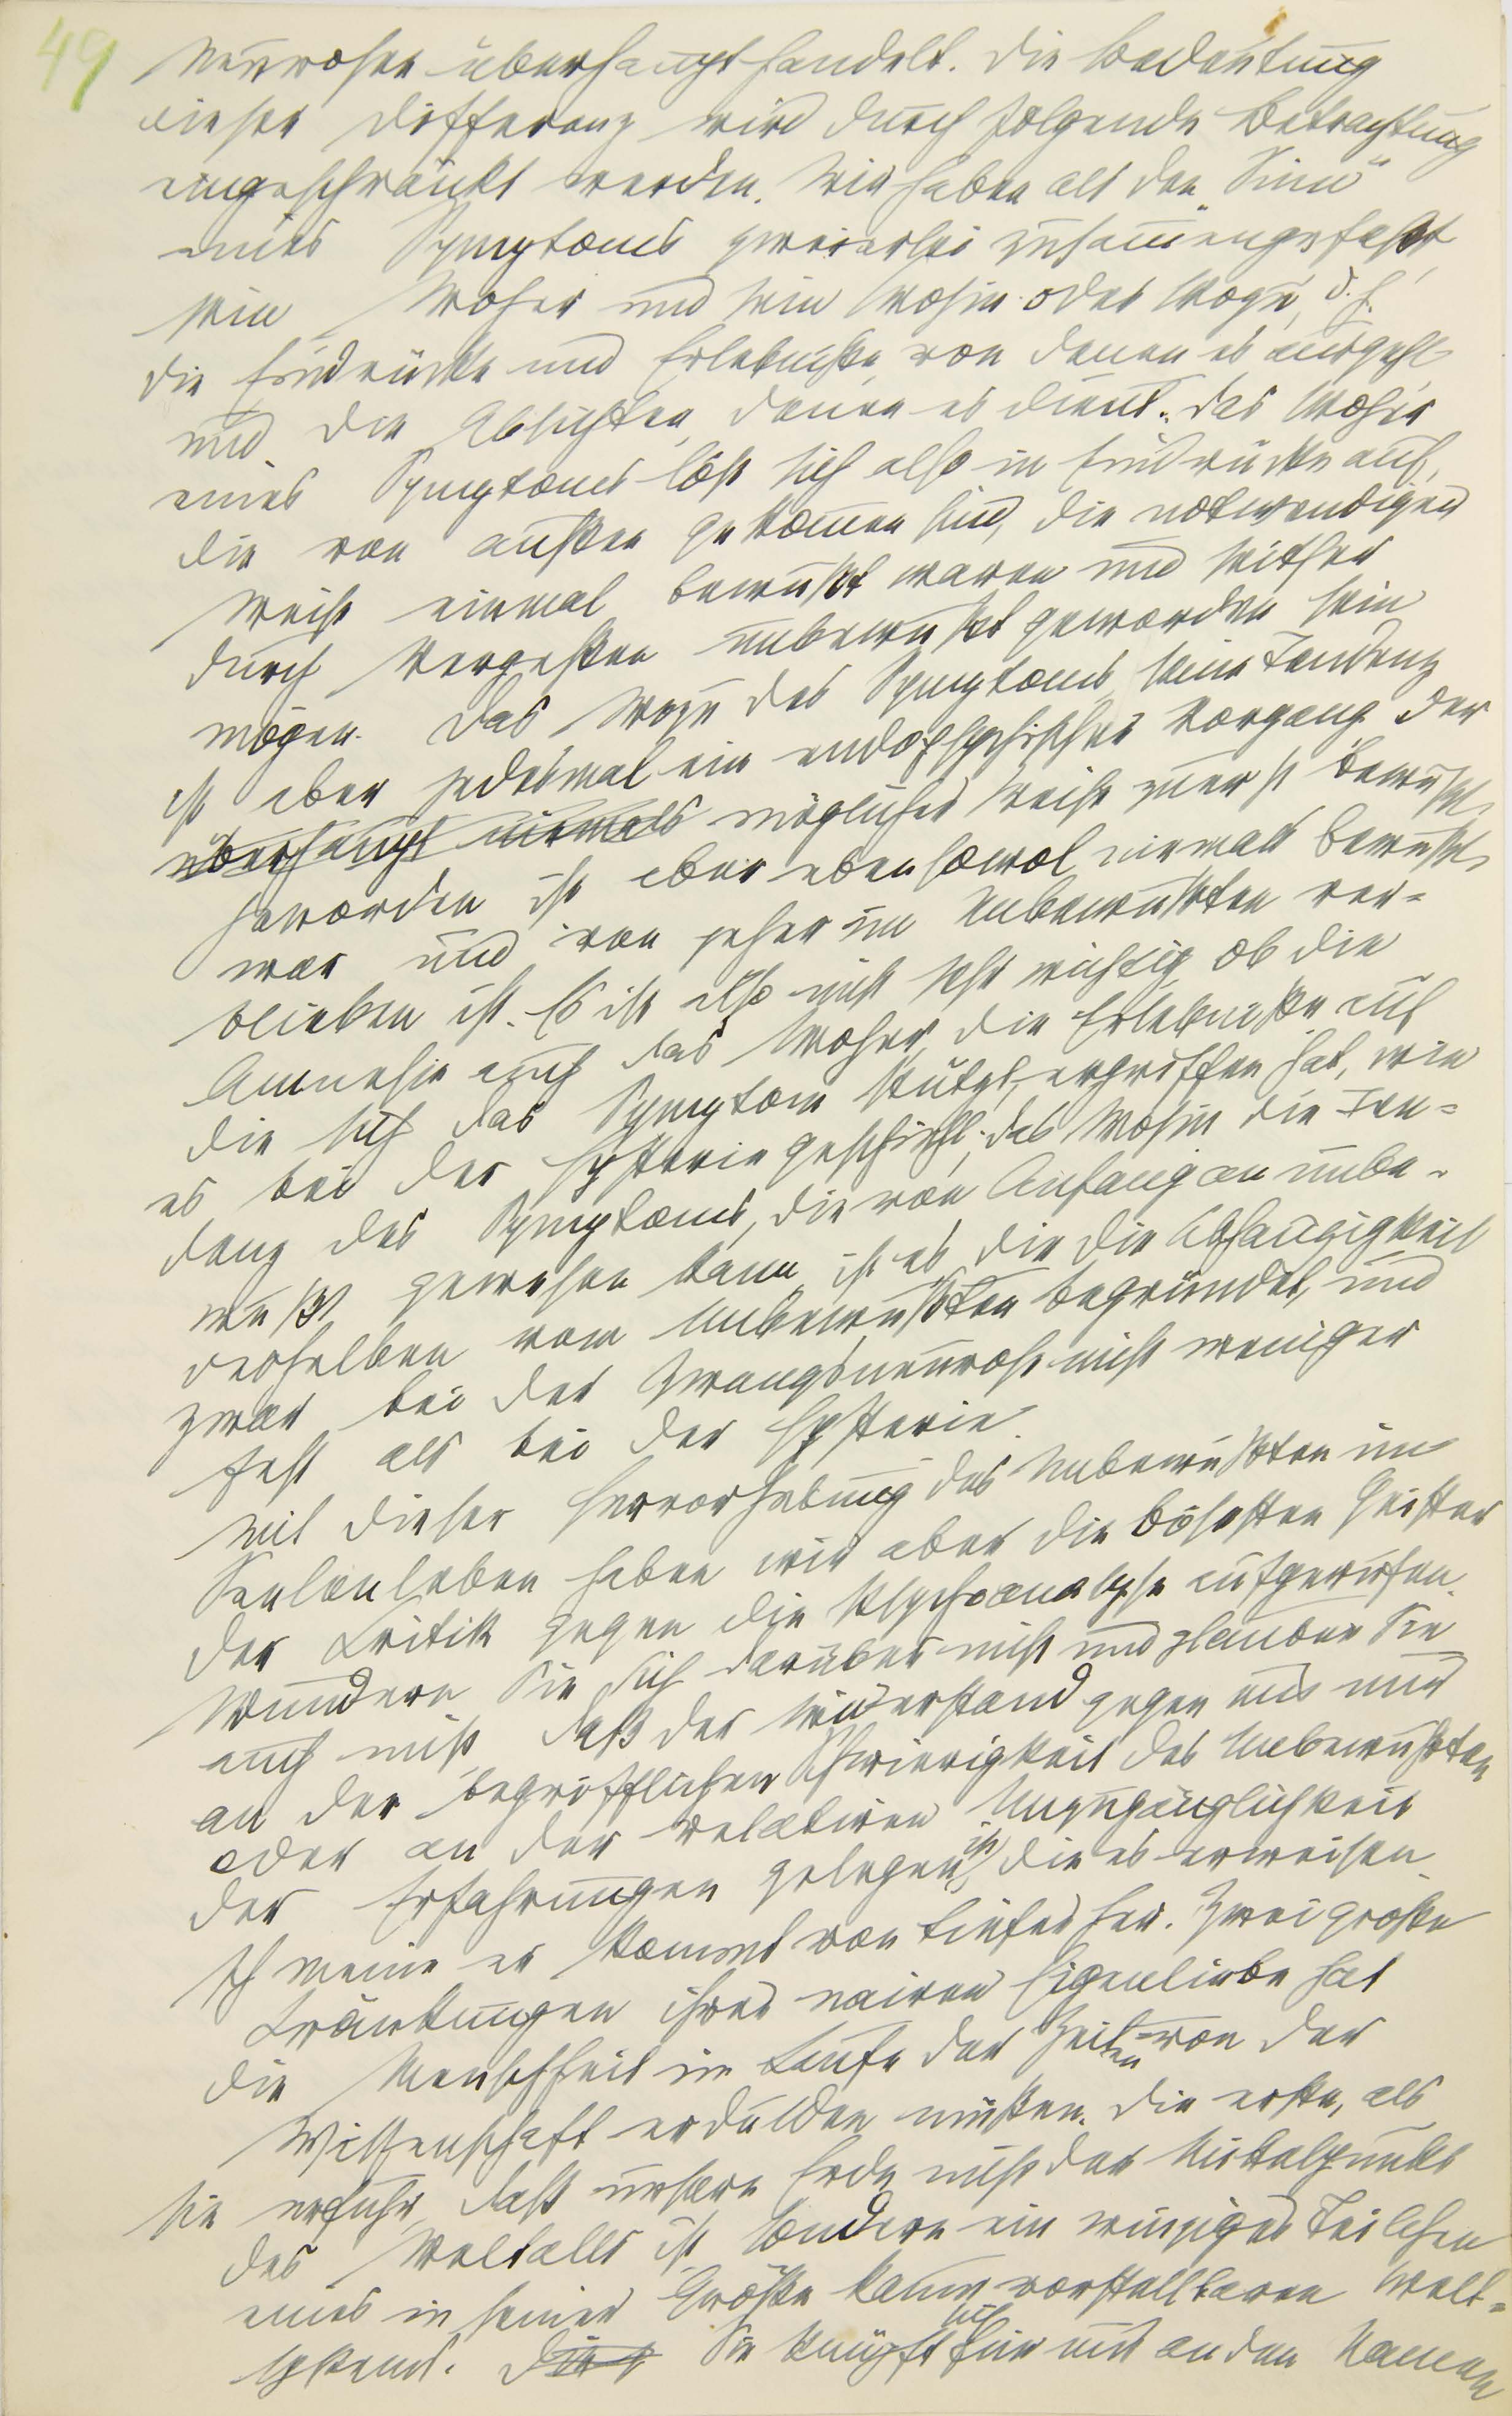 49
Neurosen überhaupt handelt. Die Bedeutung
dieser Differenz wird durch folgende Betrachtung
eingeschränkt werden. Wir haben als den „Sinn“
eines Symptoms zweierlei zusammengefaßt,
sein Woher und sein Wohin oder Wozu, d. h.
die Eindrücke und Erlebniße, von denen es ausgeht
und die Absichten, denen es dient. Das Woher
eines Symptoms löst sich also in Eindrücke auf,
die von außen gekommen sind, die notwendigen
Weise einmal bewußt waren und seither
durch Vergeßen unbewußt geworden sein
mögen. Das Wozu des Symptoms, seine Tendenz
ist aber jedesmal ein endopsychischer Vorgang der
überhaupt niemals möglicher Weise zuerst bewußt
geworden ist aber ebensowol niemals bewußt
war und von jeher im Unbewußten ver-
blieben ist. Es ist also nicht sehr wichtig ob die
Amnesie auch das Woher, die Erlebniße auf
die sich das Symptom stützt, ergriffen hat, wie
es bei der Hysterie geschieht; das Wohin die Ten-
denz des Symptoms, die von Anfang an unbe-
wußt gewesen kann, ist es die die Abhängigkeit
desselben vom Unbewußten begründet, und
zwar bei der Zwangsneurose nicht weniger
fest als bei der Hysterie.
Mit dieser Hervorhebung des Unbewußten im
Seelenleben haben wir aber die bösesten Geister
der Kritik gegen die Psychoanalyse aufgerufen.
Wundern Sie sich darüber nicht und glauben Sie
auch nicht, daß der Widerstand gegen uns nur
an der begrifflichen Schwierigkeit des Unbewußten
oder an der relativen Unzugänglichkeit
der Erfahrungen gelegen ist, die es erweisen.
Ich meine er kommt von tiefer her. Zwei große
Kränkungen ihrer naiven Eigenliebe hat
die Menschheit im Laufe der Zeiten von der
Wissenschaft erdulden müßen. Die erste, als
sie erfuhr, daß unsere Erde nicht der Mittelpunkt
des Weltalls ist sondern ein winziges Teilchen
eines in seiner Größe kaum vorstellbaren Welt-
systems. Die Sie knüpft sich für uns an den Namen